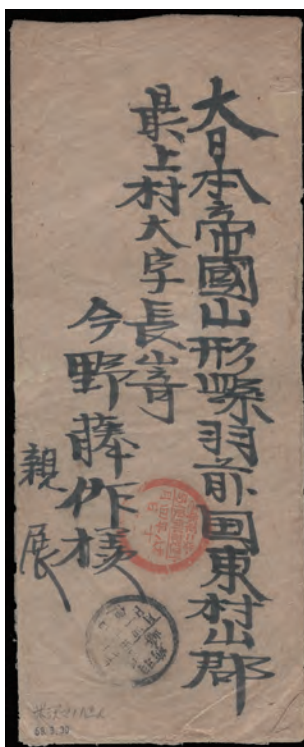 大日本帝國山形縣羽前国東村山郡
最上村大字長崎
今野藤作様
親展
68.9.30